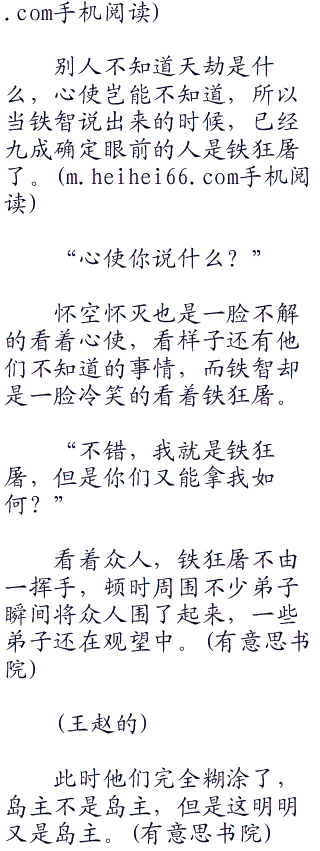 .com手机阅读)
别人不知道天劫是什
么，心使岂能不知道，所以
当铁智说出来的时候，已经
九成确定眼前的人是铁狂屠
了。(m.heihei66.com手机阅
读)
“心使你说什么？”
怀空怀灭也是一脸不解
的看着心使，看样子还有他
们不知道的事情，而铁智却
是一脸冷笑的看着铁狂屠。
“不错，我就是铁狂
屠，但是你们又能拿我如
何？”
看着众人，铁狂屠不由
一挥手，顿时周围不少弟子
瞬间将众人围了起来，一些
弟子还在观望中。(有意思书
院)
(王赵的)
此时他们完全糊涂了，
岛主不是岛主，但是这明明
又是岛主。(有意思书院)